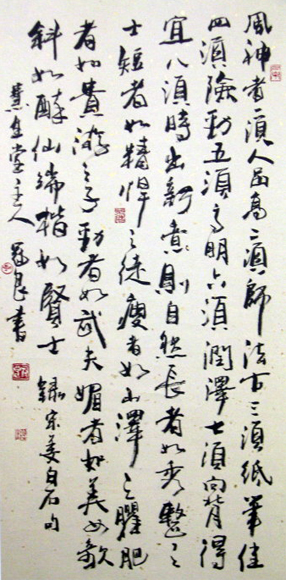 風神者一須人品高二須師法古三須紙筆佳
四須險勁五須高明六須潤澤七須向背得
宜八須時出新意則自然長者如秀整之
士短者如精悍之徒瘦者如山澤之臞肥
者如貴游之子勁者如武夫媚者如美女欹
斜如醉仙端楷如賢士 錄宋姜白石句
堂主人 書